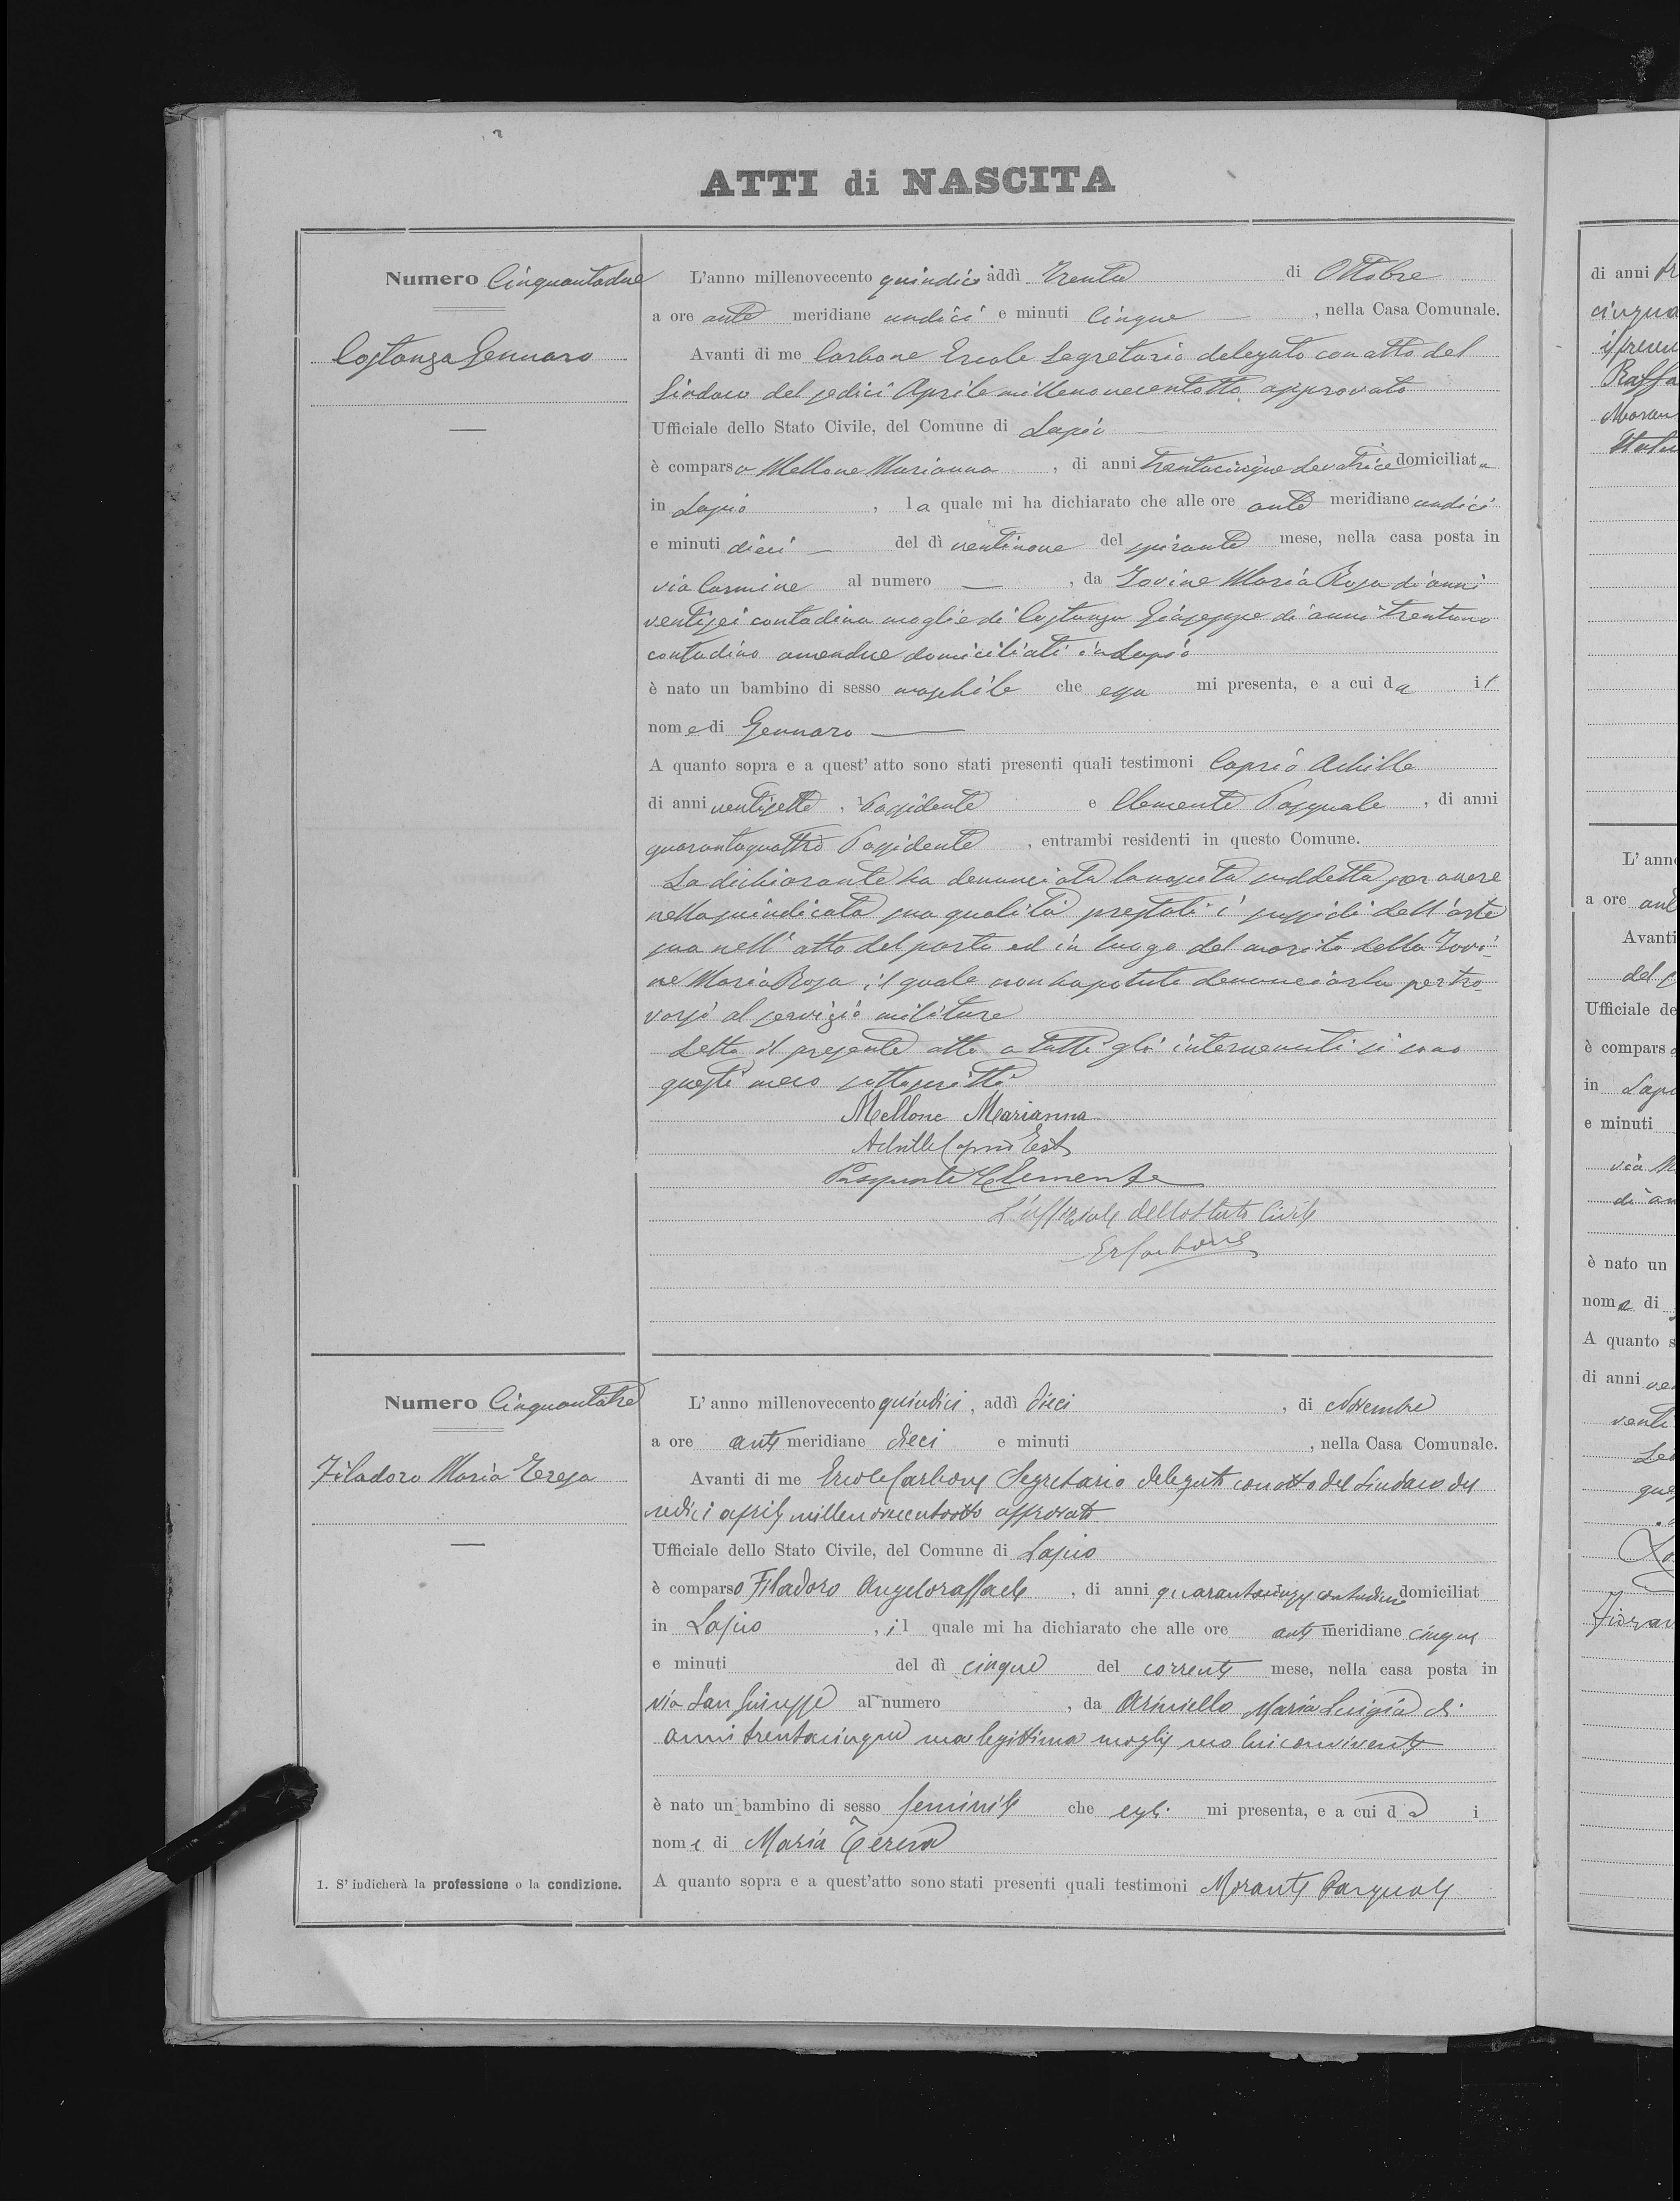 ATTI di NASCITA
Numero Cinquantadue
Costanza Gennaro
L'anno millenovecento quindici addì trenta di Ottobre
a ore ante meridiane undici e minuti Cinque, nella Casa Comunale.
Avanti di me Carbone Ercole Segretario delegato con atto del
Sindaco del sedici Aprile millenovecentotto approvato
Ufficiale dello Stato Civile, del Comune di Lapio
è comparsa Mellone Marianna, di anni trentacinque Levatrice domiciliata
in Lapio, la quale mi ha dichiarato che alle ore ante meridiane undici
e minuti dieci del dì ventinove del spirante mese, nella casa posta in
via Carmine al numero —, da Iovine Maria Rosa di anni
ventisei contadina moglie di Costanza Giuseppe di anni trentuno
contadino amendue domiciliati in Lapio
è nato un bambino di sesso maschile che essa mi presenta, e a cui da il
nome di Gennaro
A quanto sopra e a quest' atto sono stati presenti quali testimoni Caprio Achille
di anni ventisette, Possidente e Clemente Pasquale, di anni
quarantaquattro Possidente, entrambi residenti in questo Comune.
La dichiarante ha denunciata la nascita suddetta per avere
nella suindicata sua qualità prestati i sussidi dell'arte
sua nell'atto del parto ed in luogo del marito della Iovi-
ne Maria Rosa, il quale non ha potuto denunciarla per tro-
varsi al servizio militare
Letto il presente atto a tutti gli intervenuti si sono
questi meco sottoscritti
Mellone Marianna
Achille Caprio Test
Pasquale Clemente
L'ufficiale dello Stato Civile
Er Carbone
Numero Cinquantatre
Filadoro Maria Teresa
L'anno millenovecento quindici, addì dieci, di Novembre
a ore ante meridiane dieci e minuti, nella Casa Comunale.
Avanti di me Ercole Carbone Segretario delegato con atto del Sindaco del
sedici aprile millenovecentootto approvato
Ufficiale dello Stato Civile, del Comune di Lapio
è comparso Filadoro Angeloraffaele, di anni quarantacinque contadino domiciliat
in Lapio, il quale mi ha dichiarato che alle ore ante meridiane cinque
e minuti del dì cinque del corrente mese, nella casa posta in
via San Giuseppe al numero, da Arminiello Maria Luigia di
anni trentacinque sua legittima moglie seco lui convivente
è nato un bambino di sesso feminile che egli mi presenta, e a cui dà i
nome di Maria Teresa
1. S' indicherà la professione o la condizione.
A quanto sopra e a quest'atto sono stati presenti quali testimoni Morante Pasquale
di anni
cinqua
Raffa
L' anno
a ore ante
Avanti
del
Ufficiale de
è compars
in Lapi
e minuti
via M
di an
è nato un
nome di
A quanto s
di anni ve
venti